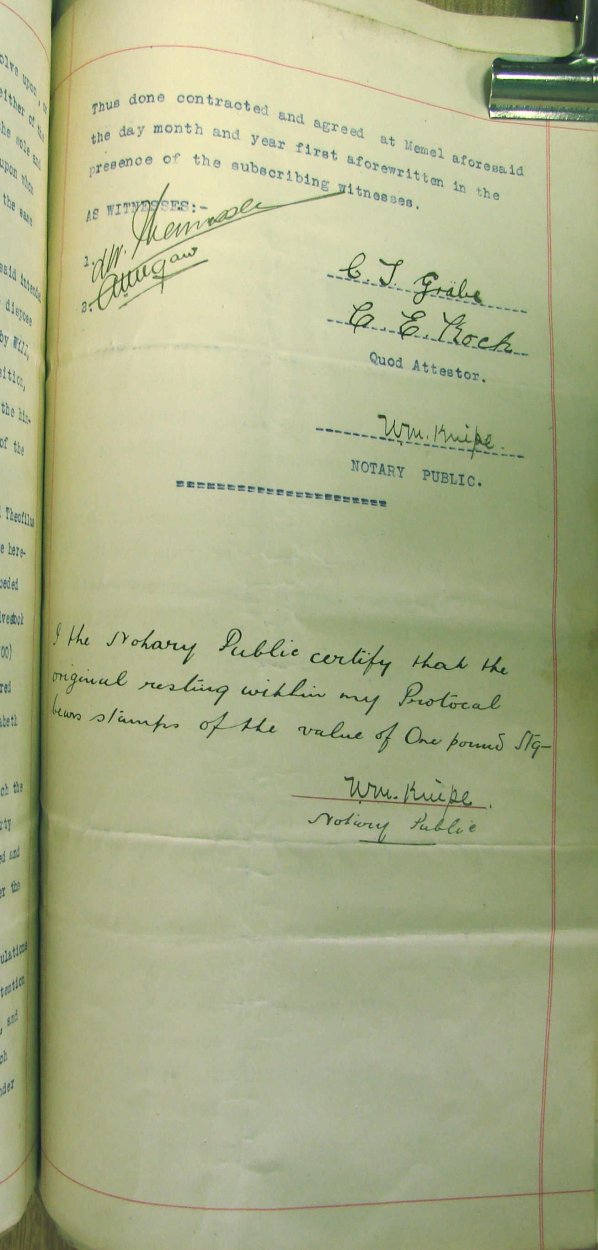 Thus done contracted and agreed at Memel aforesaid
the day month and year first aforewritten in the
presence of the subscribing witnesses.
AS WITNESSES:-
1.
2.
C. T. Gräbe
C. E. Kock
Quod Attestor.
Wm. Knipe.
NOTARY PUBLIC.
I the Notary Public certify that the
original resting within my Protocal
bears stamps of the value of One pound Stg-
Wm. Knipe.
Notary Public
olve upon, or
either of the
he sole and
upon them
the same
said intended
dispose
by Will,
sition,
the hin-
of the
Theofilus
e here-
ceded
ivestock
00)
red
abeth
ch the
rty
ed and
er the
ulations
tention
, and
ch
nder